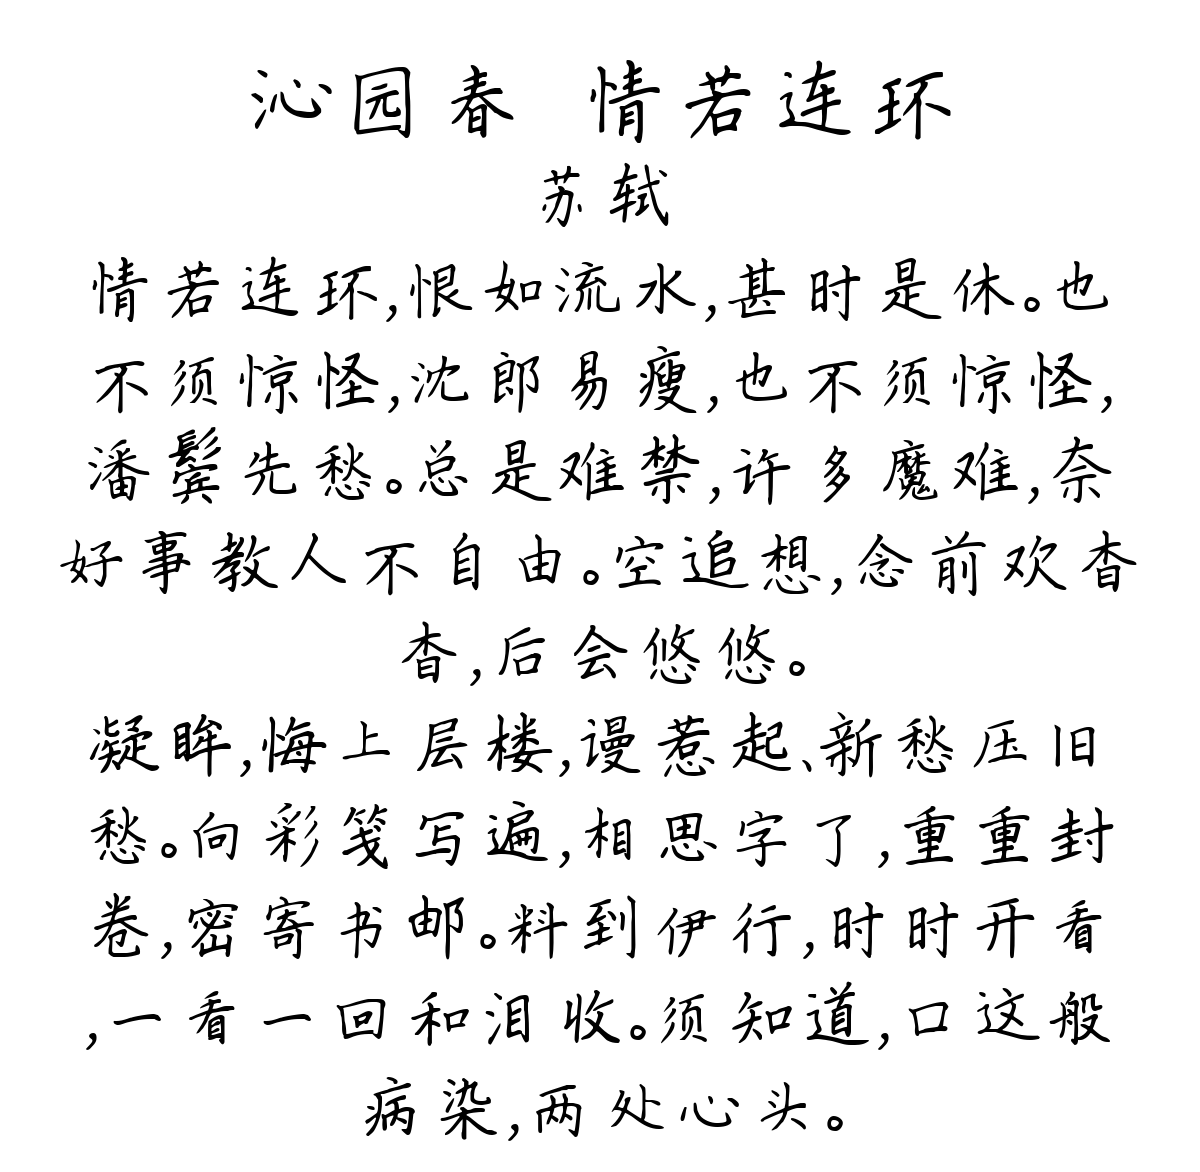 沁园春 情若连环
苏轼
情若连环,恨如流水,甚时是休。也
不须惊怪,沈郎易瘦,也不须惊怪,
潘鬓先愁。总是难禁,许多魔难,奈
好事教人不自由。空追想,念前欢杳
杳,后会悠悠。
凝眸,悔上层楼,谩惹起、新愁压旧
愁。向彩笺写遍,相思字了,重重封
卷,密寄书邮。料到伊行,时时开看
,一看一回和泪收。须知道,口这般
病染,两处心头。